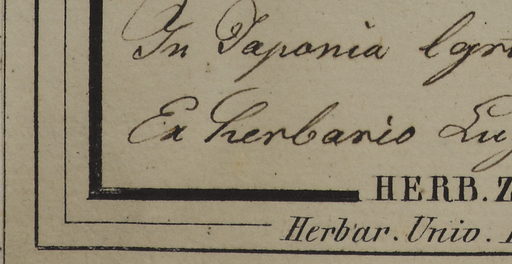 In Japonia lgr
Ex herbario Lug
HERB. Z
Herbar. Univ.